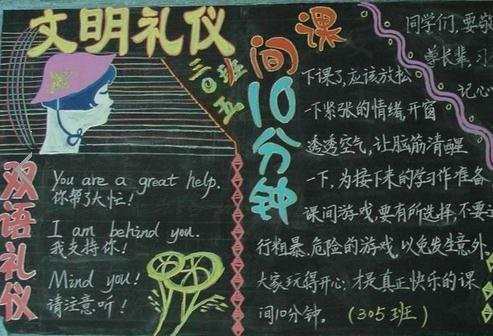 文明礼仪
三〇五班
双语礼仪
You are a great help.
你帮了大忙!
I am behind you.
我支持你!
Mind you!
请注意听!
课间10分钟
下课了,应该放松
一下紧张的情绪,开窗
透透空气,让脑筋清醒
一下,为接下来的学习作准备
课间游戏,要有所选择,不要
行粗暴、危险的游戏,以免发生意外
大家玩得开心,才是真正快乐的课
间10分钟。(305班)
同学们,要
学长辈,
记心